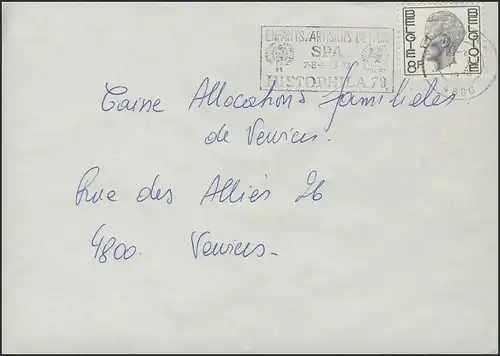 ENFANTS, ARTISANS DE PAIX
SPA
HISTOPHILA 79
BELGIE 8F BELGIQUE
4880
Caisse Allocations familiales
de Verviers.
Rue des Alliés 26
4800. Verviers-